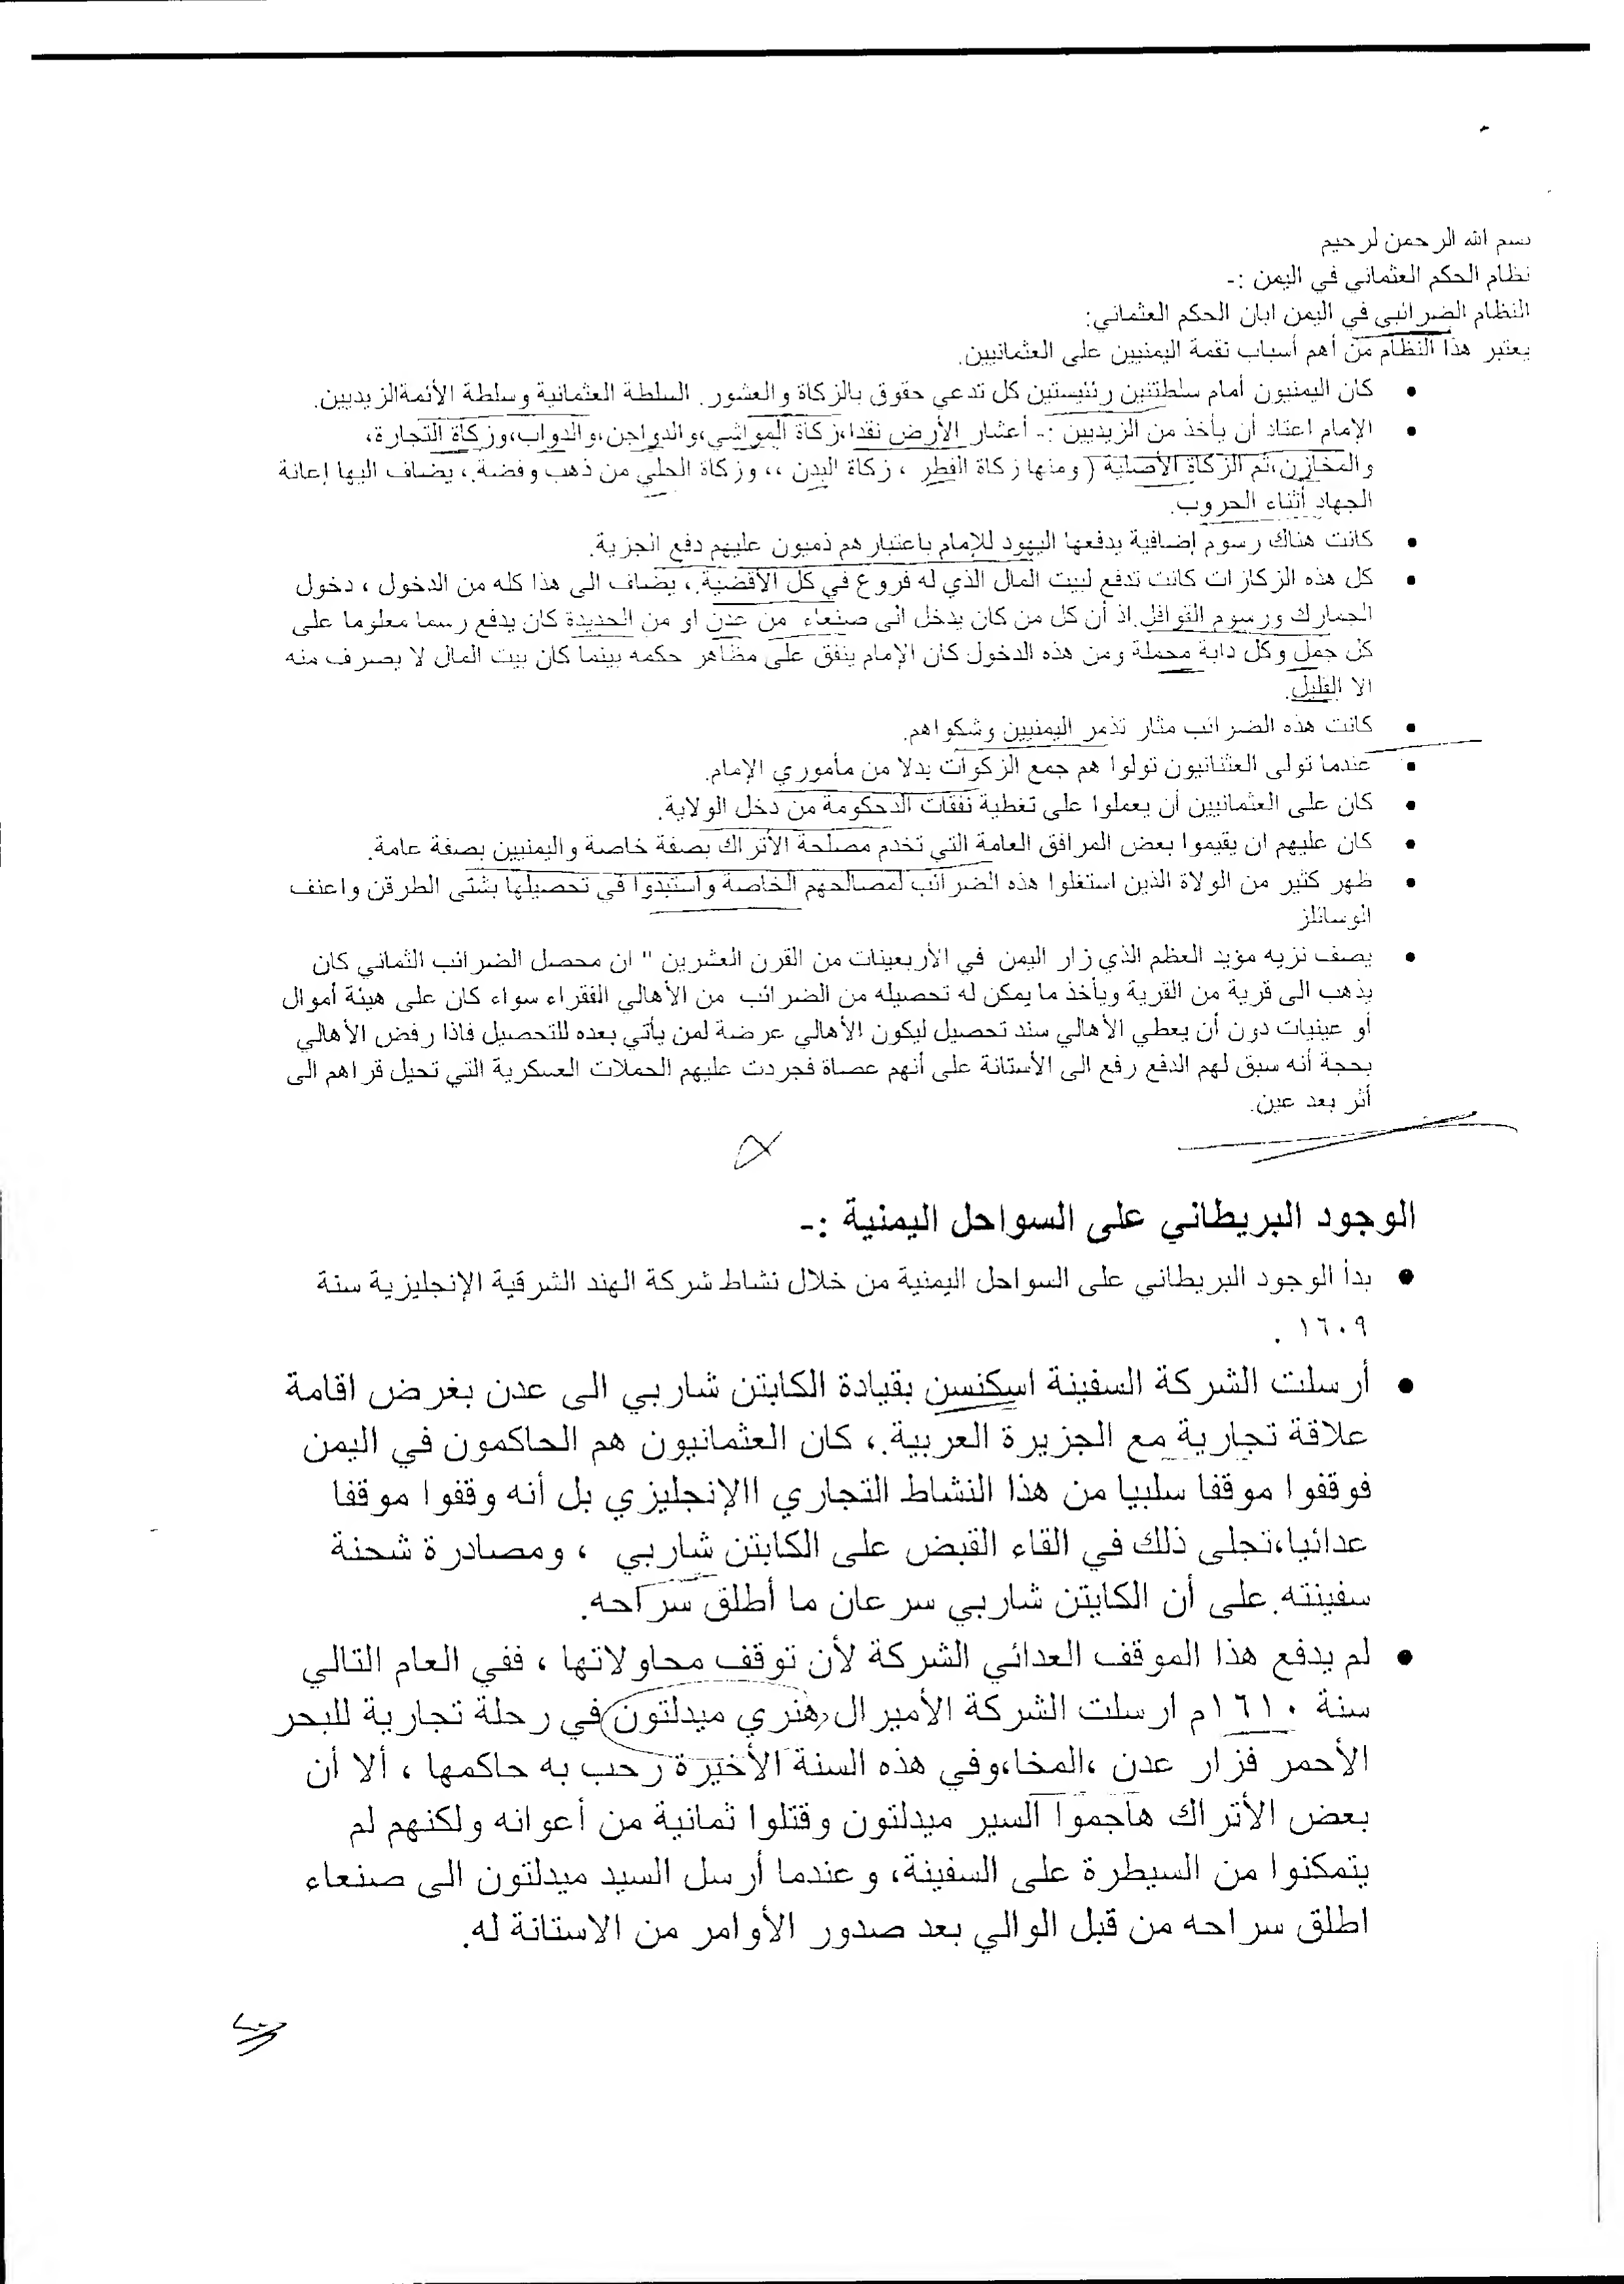 بسم الله الرحمن لرحيم
نظام الحكم العثماني في اليمن :-
النظام الضرائبي في اليمن ابان الحكم العثماني:
يعتبر هذا النظام من أهم أسباب نقمة اليمنيين على العثمانيين.
• كان اليمنيون أمام سلطتنين رئنيستين كل تدعي حقوق بالزكاة والعشور. السلطة العثمانية وسلطة الأئمةالزيديين.
• الإمام اعتاد أن يأخذ من الزيديين :- أعشار الأرض نقدا،زكاة المواشي،والدواجن،والدواب،وزكاة التجارة،
والمخازن،ثم الزكاة الأصلية ( ومنها زكاة الفطر ، زكاة البدن ،، وزكاة الحلي من ذهب وفضة.، يضاف اليها إعانة
الجهاد أثناء الحروب.
• كانت هناك رسوم إضافية يدفعها اليهود للإمام باعتبارهم ذميون عليهم دفع الجزية.
• كل هذه الزكازات كانت تدفع لبيت المال الذي له فروع في كل الأقضية.، يضاف الى هذا كله من الدخول ، دخول
الجمارك ورسوم القوافل.اذ أن كل من كان يدخل الى صنعاء من عدن او من الحديدة كان يدفع رسما معلوما على
كل جمل وكل دابة محملة ومن هذه الدخول كان الإمام ينفق على مظاهر حكمه بينما كان بيت المال لا يصرف منه
الا القليل.
• كانت هذه الضرائب مثار تذمر اليمنيين وشكواهم.
• عندما تولى العثنانيون تولوا هم جمع الزكوات بدلا من مأموري الإمام.
• كان على العثمانيين أن يعملوا على تغطية نفقات الدحكومة من دخل الولاية.
• كان عليهم ان يقيموا بعض المرافق العامة التي تخدم مصلحة الأتراك بصفة خاصة واليمنيين بصفة عامة.
• ظهر كثير من الولاة الذين استغلوا هذه الضرائب لمصالحهم الخاصة واستبدوا في تحصيلها بشتى الطرقن واعنف
الوسائلز
• يصف نزيه مؤيد العظم الذي زار اليمن في الأربعينات من القرن العشرين " ان محصل الضرائب الثماني كان
يذهب الى قرية من القرية ويأخذ ما يمكن له تحصيله من الضرائب من الأهالي الفقراء سواء كان على هيئة أموال
أو عينيات دون أن يعطي الأهالي سند تحصيل ليكون الأهالي عرضة لمن يأتي بعده للتحصيل فاذا رفض الأهالي
بحجة أنه سبق لهم الدفع رفع الى الأستانة على أنهم عصاة فجردت عليهم الحملات العسكرية التي تحيل قراهم الى
أثر بعد عين.
الوجود البريطاني على السواحل اليمنية :-
• بدأ الوجود البريطاني على السواحل اليمنية من خلال نشاط شركة الهند الشرقية الإنجليزية سنة
١٦٠٩ .
• أرسلت الشركة السفينة اسكنسن بقيادة الكابتن شاربي الى عدن بغرض اقامة
علاقة تجارية مع الجزيرة العربية.، كان العثمانيون هم الحاكمون في اليمن
فوقفوا موقفا سلبيا من هذا النشاط التجاري االإنجليزي بل أنه وقفوا موقفا
عدائيا،تجلى ذلك في القاء القبض على الكابتن شاربي ، ومصادرة شحنة
سفينته.على أن الكابتن شاربي سرعان ما أطلق سراحه.
• لم يدفع هذا الموقف العدائي الشركة لأن توقف محاولاتها ، ففي العام التالي
سنة ١٦١٠م ارسلت الشركة الأميرال هنري ميدلتون في رحلة تجارية للبحر
الأحمر فزار عدن ،المخا،وفي هذه السنة الأخيرة رحب به حاكمها ، ألا أن
بعض الأتراك هاجموا السير ميدلتون وقتلوا ثمانية من أعوانه ولكنهم لم
يتمكنوا من السيطرة على السفينة، وعندما أرسل السيد ميدلتون الى صنعاء
اطلق سراحه من قبل الوالي بعد صدور الأوامر من الاستانة له.